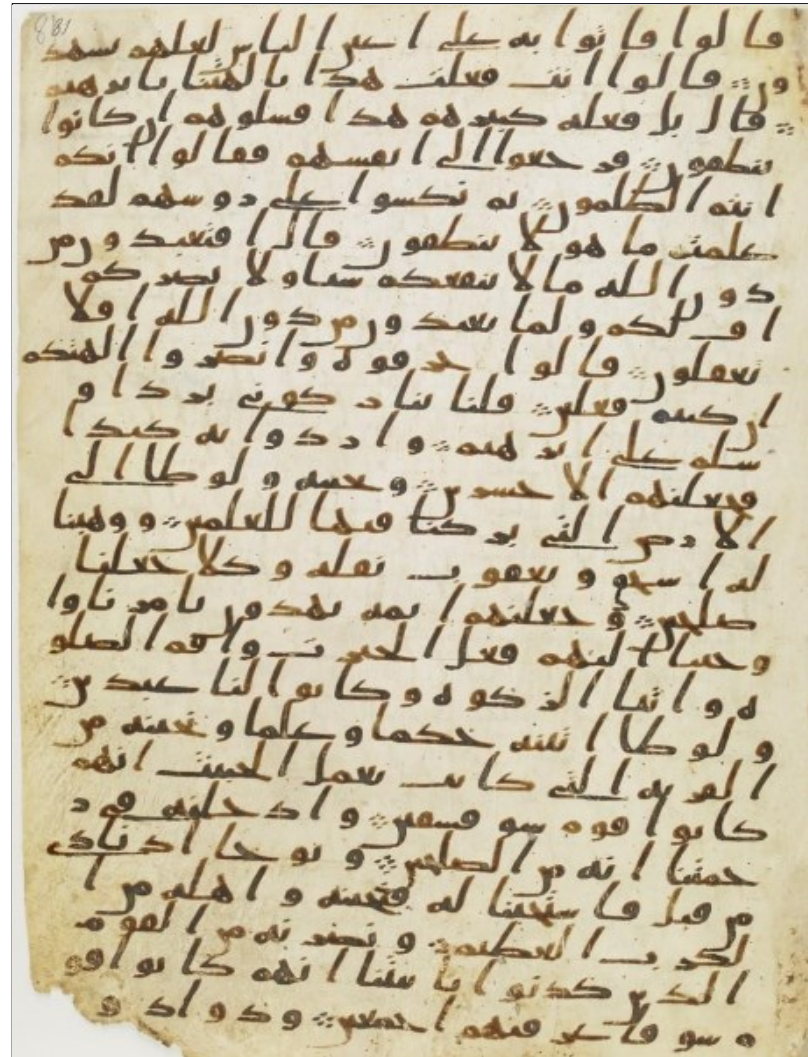 قالوا فاتوا به على اعين الناس لعلهم يشهد
ون ؞ قالوا اانت فعلت هذا بالهتنا يابرهيم
؞ قال بل فعله كبيرهم هذا فسلوهم ان كانوا
ينطقون ؞ فرجعوا الى انفسهم فقالوا انكم
انتم الظلمون ؞ ثم نكسوا على روسهم لقد
علمت ما هولا ينطقون ؞ قال افتعبدون من
دون الله ما لا ينفعكم شيا ولا يضركم
اف لكم ولما تعبدون من دون الله افلا
تعقلون ؞ قالوا حرقوه وانصروا الهتكم
ان كنتم فعلين ؞ قلنا ينار كوني بردا و
سلم على ابرهيم ؞ وارادوا به كيدا
فجعلنهم الاخسرين ؞ ونجينه ولوطا الى
الارض التي بركنا فيها للعلمين ؞ ووهبنا
له اسحق ويعقوب نفله وكلا جعلنا
صلحين ؞ وجعلنهم ايمه يهدون بامرنا وا
وحينا اليهم فعل الخيرت واقم الصلو
ه وايتا الزكوه وكانوا لنا عبدين ؞
ولوطا اتينه حكما وعلما ونجينه من
القريه التي كانت تعمل الخبيث انهم
كانوا قوم سو فسقين ؞ وادخلنه في ر
حمتنا انه من الصلحين ؞ ونوحا اذ نادى
من قبل فاستجبنا له فنجينه واهله من ا
لكرب العظيم ؞ ونصرنه من القوم
الذين كذبوا بايتنا انهم كانوا قو
م سو فاغرقنهم اجمعين ؞ وداود و